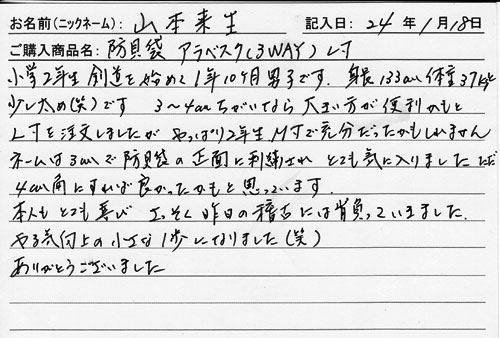 お名前(ニックネーム): 山本来生 記入日: 24 年 1月 18日
ご購入商品名: 防具袋 アラベスク(3WAY) L寸
小学2年生 剣道を始めて1年10ヶ月男子です. 身長133cm体重37kgと
少し太め(笑)です 3〜4cmちがいなら 大きい方が便利かもと
L寸を注文しましたが やっぱり2年生M寸で充分だったかもしれません
ネームは3cmで防具袋の正面に刺繍され とても気に入りました ただ
4cm角にすれば良かったかもと思っています.
本人もとても喜び さっそく昨日の稽古には背負っていきました.
やる気向上の小さな1歩になりました(笑)
ありがとうございました